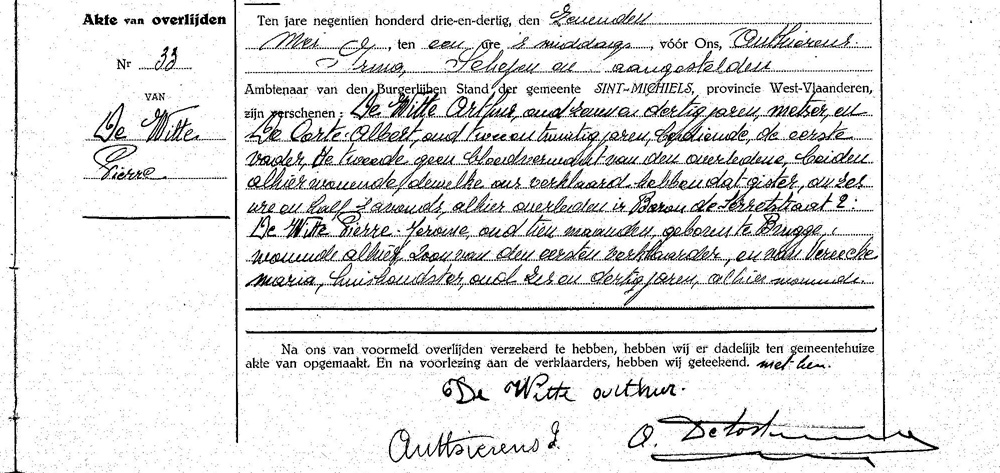 Akte van overlijden
Nr 33
VAN
De Witte
Pierre
Ten jare negentien honderd drie-en-dertig, den Zevenden
Mei, ten een ure 's middags, vóór Ons, Authierens
Schepen aangestelden
Ambtenaar van den Burgerlijken Stand der gemeente SINT-MICHIELS, provincie West-Vlaanderen,
zijn verschenen: De Witte Arthur, oud zeven en dertig jaren, metser, en
De Corte Albert, oud twee en twintig jaren, bediende, de eerste
vader, de tweede geen bloedverwant van den overledene, beiden
alhier wonende, dewelke ons verklaard hebben dat gister, om zes
ure en half 's avonds, alhier overleden is Baron de Serretstraat 2:
De Witte Pierre-Jerome, oud tien maanden, geboren te Brugge,
wonende alhier, zoon van den eersten verklaarder, en van Vereecke
Maria, huishoudster, oud zes en dertig jaren, alhier wonende.
Na ons van voormeld overlijden verzekerd te hebben, hebben wij er dadelijk ten gemeentehuize
akte van opgemaakt. En na voorlezing aan de verklaarders, hebben wij geteekend. met hen.
De Witte Arthur.
Authierens I.